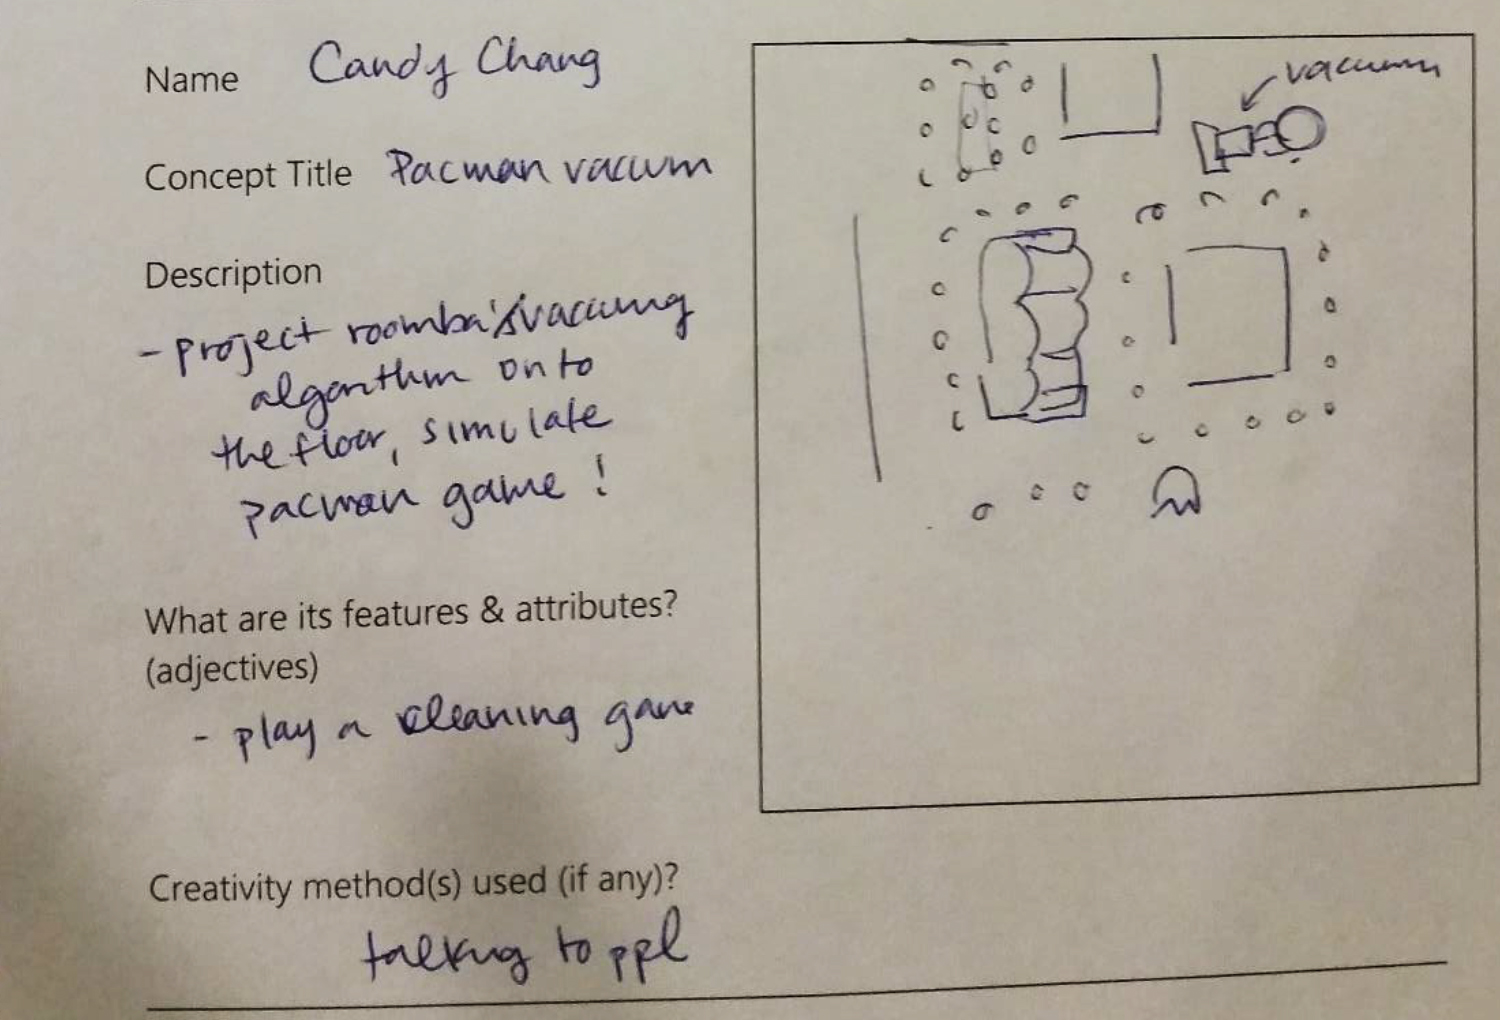 Name Candy Chang
vacuum
Concept Title Pacman vacuum
Description
- project roomba's vacuuming
algorithm onto
the floor, simulate
pacman game !
What are its features & attributes?
(adjectives)
- play a cleaning game
Creativity method(s) used (if any)?
talking to ppl